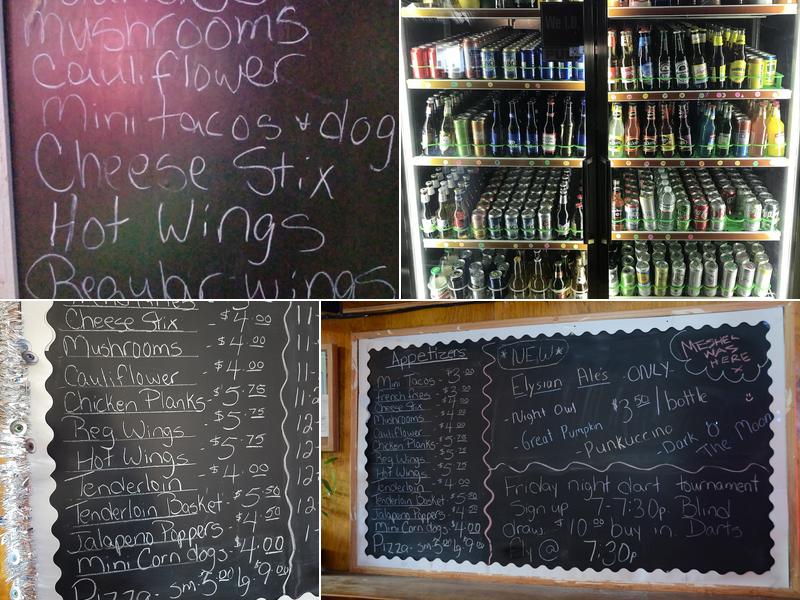 mushrooms
Cauliflower
Mini tacos & dog
Cheese Stix
Hot Wings
Regular wings
We I.D.
Cheese Stix - $4.00
Mushrooms - $4.00
Cauliflower - $4.00
Chicken Planks - $5.75
Reg Wings - $5.75
Hot Wings - $5.75
Tenderloin - $4.00
Tenderloin Basket - $5.50
Jalapeno Poppers - $4.50
Mini Corn dogs - $4.00
Pizza - sm. 5.00 lg. $9.00
11-
11-
12-
12-
12-
1-
Appetizers
Mini Tacos - $3.00
french fries
Cheese Stix - $4.00
Mushrooms - $4.00
Cauliflower - $4.00
Chicken Planks - $5.75
Reg Wings - $5.75
Hot Wings - $5.75
Tenderloin - $4.00
Tenderloin Basket - $5.50
Jalapeno Poppers - $4.50
Mini Corn dogs - $4.00
Pizza - sm. $5.00 lg. $9.00
*NEW*
Elysian Ale's ONLY
- Night Owl $3.50 / bottle
- Great Pumpkin
- Punkuccino
- Dark O' The Moon
MESHEL
WAS
HERE
x
Friday night dart tournament
Sign up 7-7:30p. Blind
draw. $10.00 buy in. Darts
fly @ 7:30p